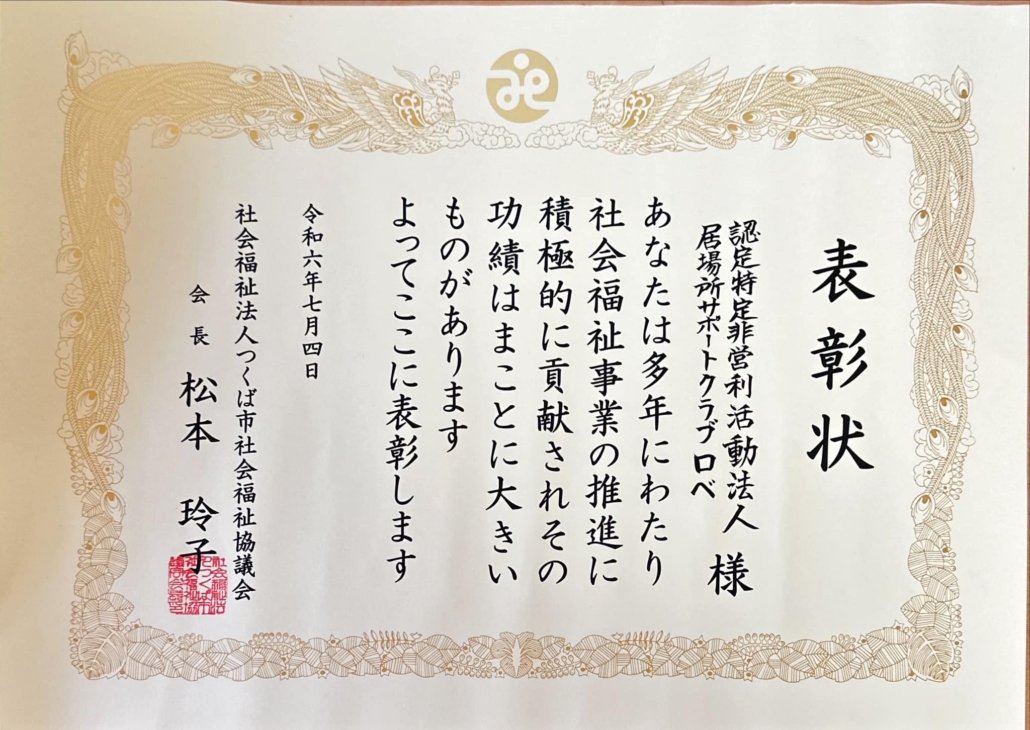 表彰状
認定特定非営利活動法人
居場所サポートクラブロベ 様
あなたは多年にわたり
社会福祉事業の推進に
積極的に貢献されその
功績はまことに大きい
ものがあります
よってここに表彰します
令和六年七月四日
社会福祉法人つくば市社会福祉協議会
会長 松本 玲子